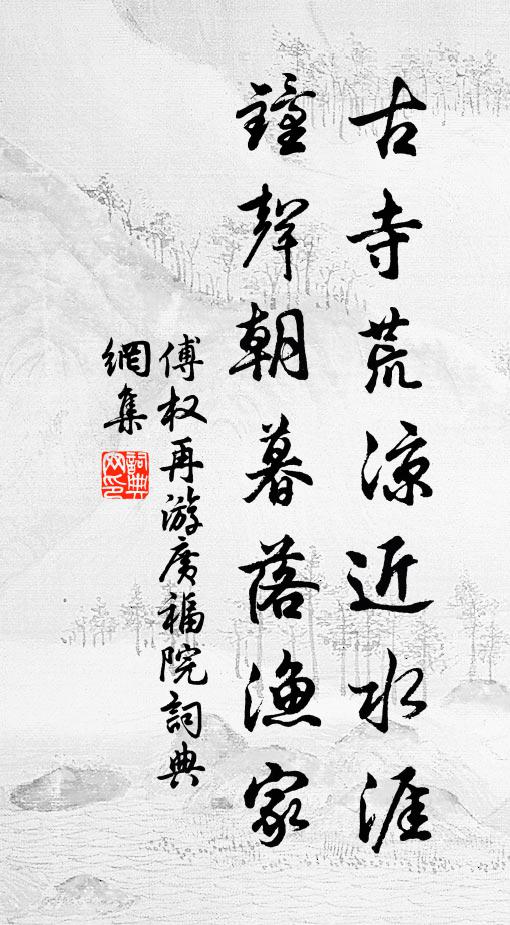 古寺荒凉近水涯
鐘聲朝暮落漁家
傅权再游廣福院詞典
網集
詞典網印